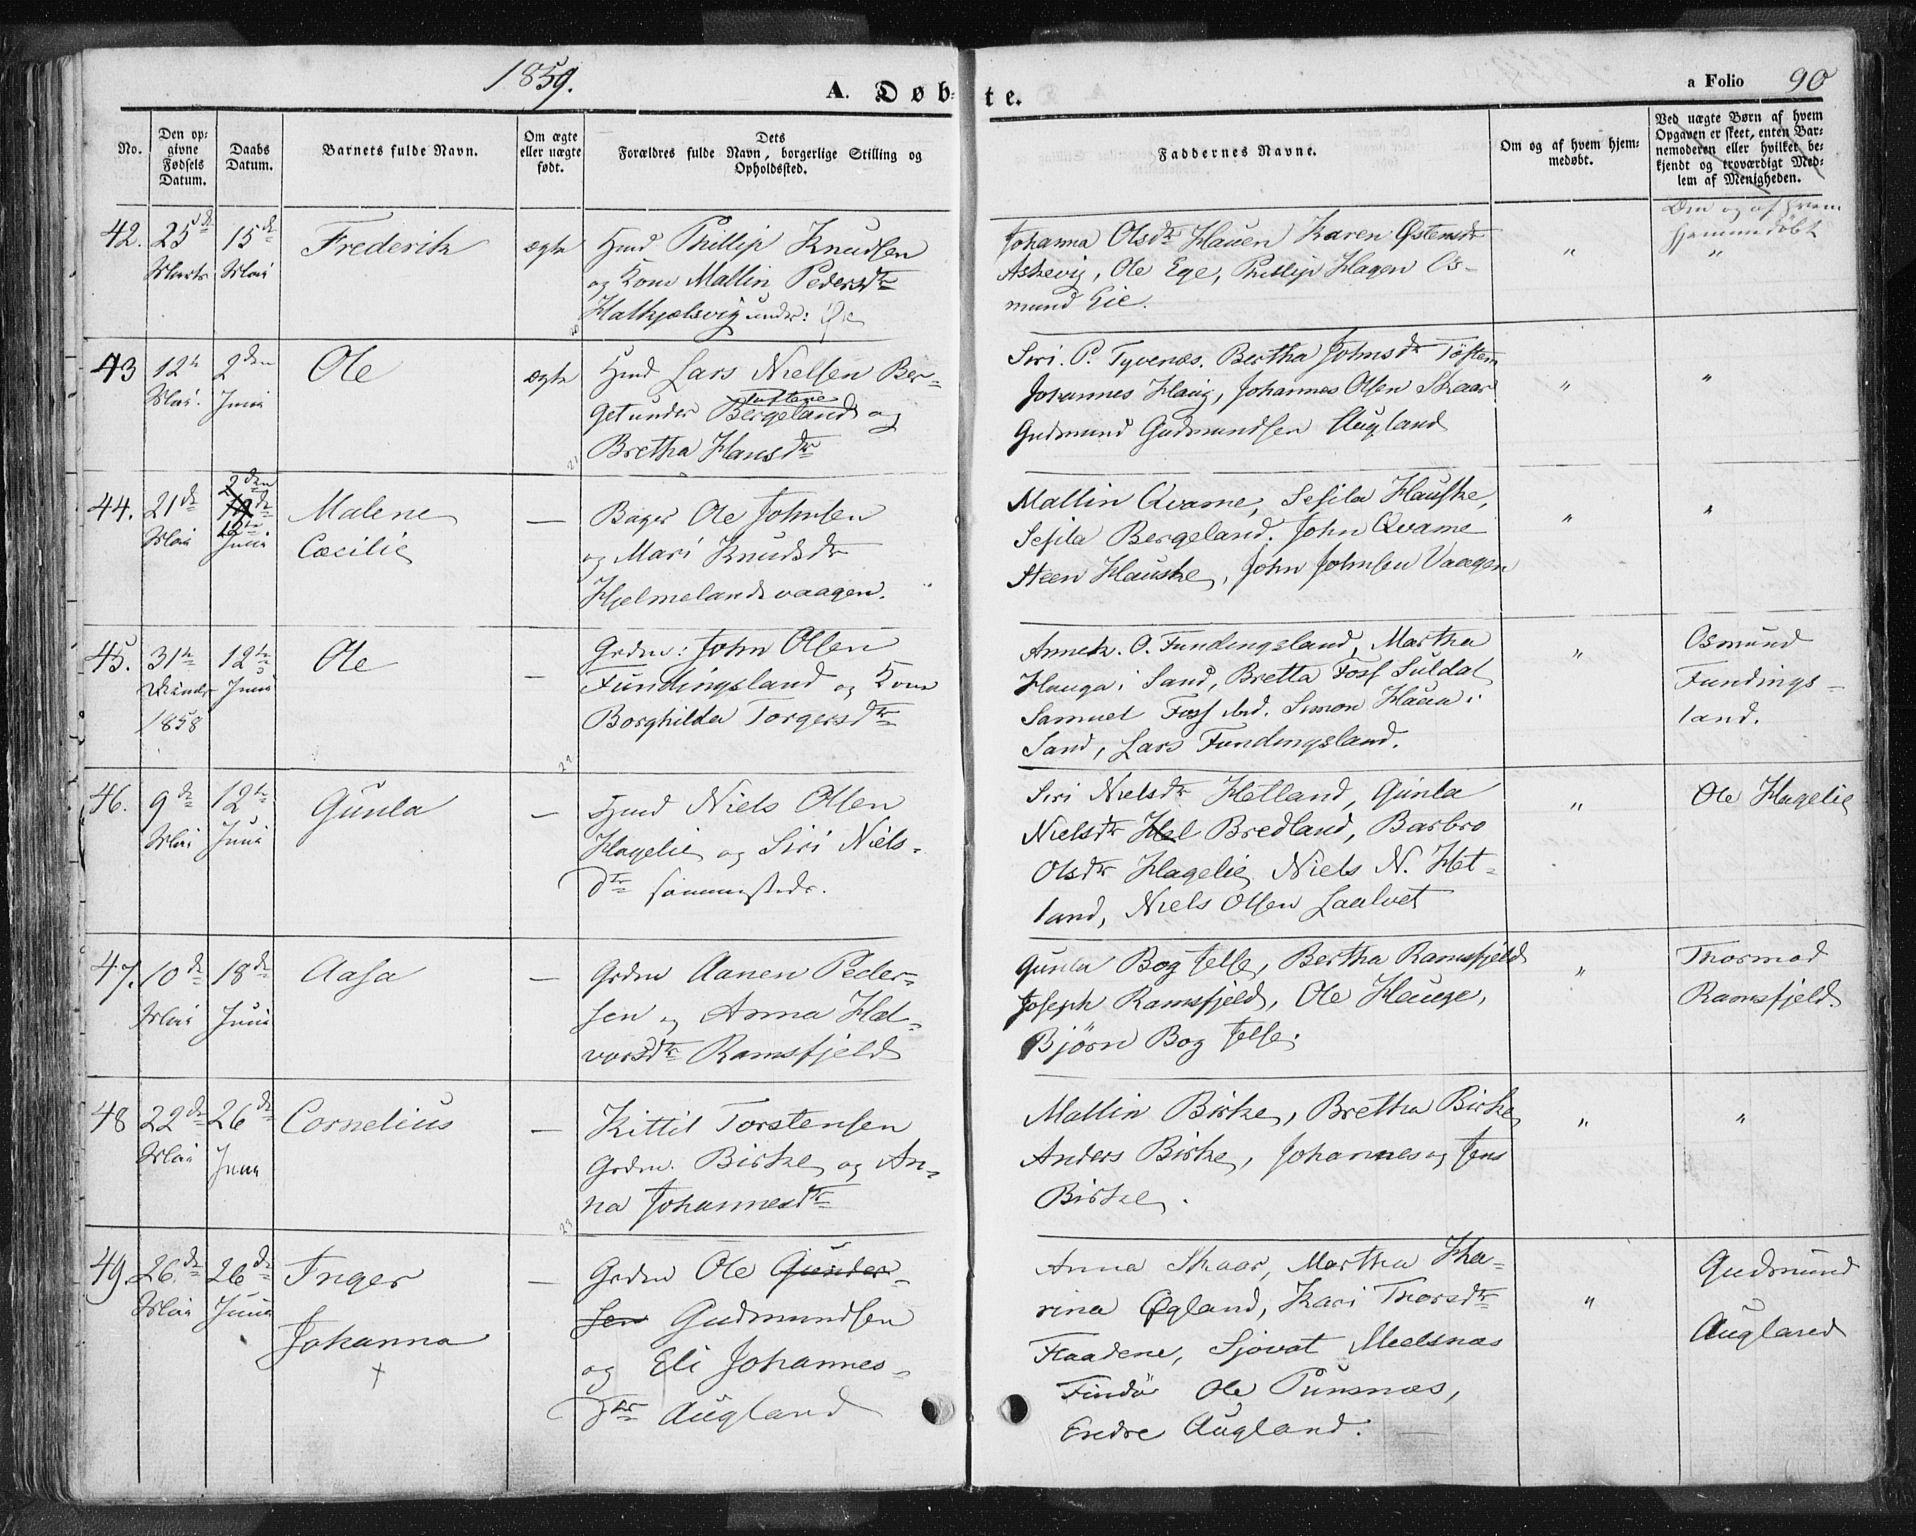 1859.
A. Døb-
te.
a Folio 90
No.
Den op-
givne
Fødsels
Datum.
Daabs
Datum.
Barnets fulde Navn.
Om ægte
eller uægte
født.
Dets
Forældres fulde Navn, borgerlige Stilling og
Opholdssted.
Faddernes Navne.
Om og af hvem hjem-
medøbt.
Ved uægte Børn af hvem
Opgaven er skeet, enten Bar-
nemoderen eller hvilket be-
kjendt og troværdigt Med-
lem af Menigheden.
Om og af hvem
hjemmedøbt
42. 25de
Marts
15de
Mai
Frederik
ægte
Hmd Phillip Knudsen
og Kone Mallin Pedersdtr
Hathjelsvig under:
Johanna Olsdtr Hauen Karen Østensdtr
Askevig, Ole Ege, Phillip Hagen Os-
mund Eie.
"
"
43
12te
Mai.
2den
Junii
Ole
ægte
Hmd Lars Nielsen Ber-
get under Bergeland og
Bretha Hansdtr
Siri. P. Tyvenæs. Bertha Johnsdtr Tøften
Johannes Haug, Johannes Olsen Skaar
Gudmund Gudmundsen Augland
"
"
44. 21de
Mai
2den
12te
Junii
Malene
Cæcilie
—
Bager Ole Johnsen
og Mari Knudsdtr
Hjelmelandsvaagen.
Mallin Qvame, Sesila Hauske,
Sesila Bergeland. John Qvame
Steen Hauske, John Johnsen Vaagen
"
"
45. 31te
Decembr
1858
12te
Junii
Ole
—
Grdm: John Olsen
Fundingsland og Kone
Borghilda Torgersdtr
22
Anne. O. Fundingsland, Martha
Hauga i Sand, Bretta Foss Suldal
Samuel Foss ibd. Simon Haua i
Sand, Lars Fundingsland.
"
Osmund
Fundings-
land.
46. 9de
Mai
12te
Junii
Gunla
—
Hmd Niels Olsen
Hagelie og Siri Niels-
dtr sammesteds.
Siri Nielsdtr Hetland, Gunla
Nielsdtr Hel Bredland, Barbro
Olsdtr Hagelie Niels N. Het-
land, Niels Olsen Laalvet
"
Ole Hagelie
47. 10de
Mai
18de
Junii
Aasa
—
Grdm Aanen Peder-
sen og Anna Hal-
vorsdtr Ramsfjeld
Gunla Bog Jelse, Bertha Ramsfjeld
Joseph Ramsfjeld, Ole Hauge,
Bjørn Bog Jelse.
"
Thormod
Ramsfjeld.
48 22de
Mai
26de
Junii
Cornelius
—
Kittil Torstensen
Grdm. Birke og An-
na Johannesdtr
23
Mallin Birke, Bretha Birke
Anders Birke, Johannes og Jens
Birke.
"
"
49. 26de
Mai
26de
Junii
Inger
Johanna
+
—
Grdm Ole Gunder-
sen Gudmundsen
og Eli Johannes-
dtr Augland
Anna Skaar, Martha Kha-
rina Øgland, Kari Thorsdtr
Flaadene, Sjovat Meelsnæs
Findø Ole Punsnæs,
Endre Augland.
"
Gudmund
Augland